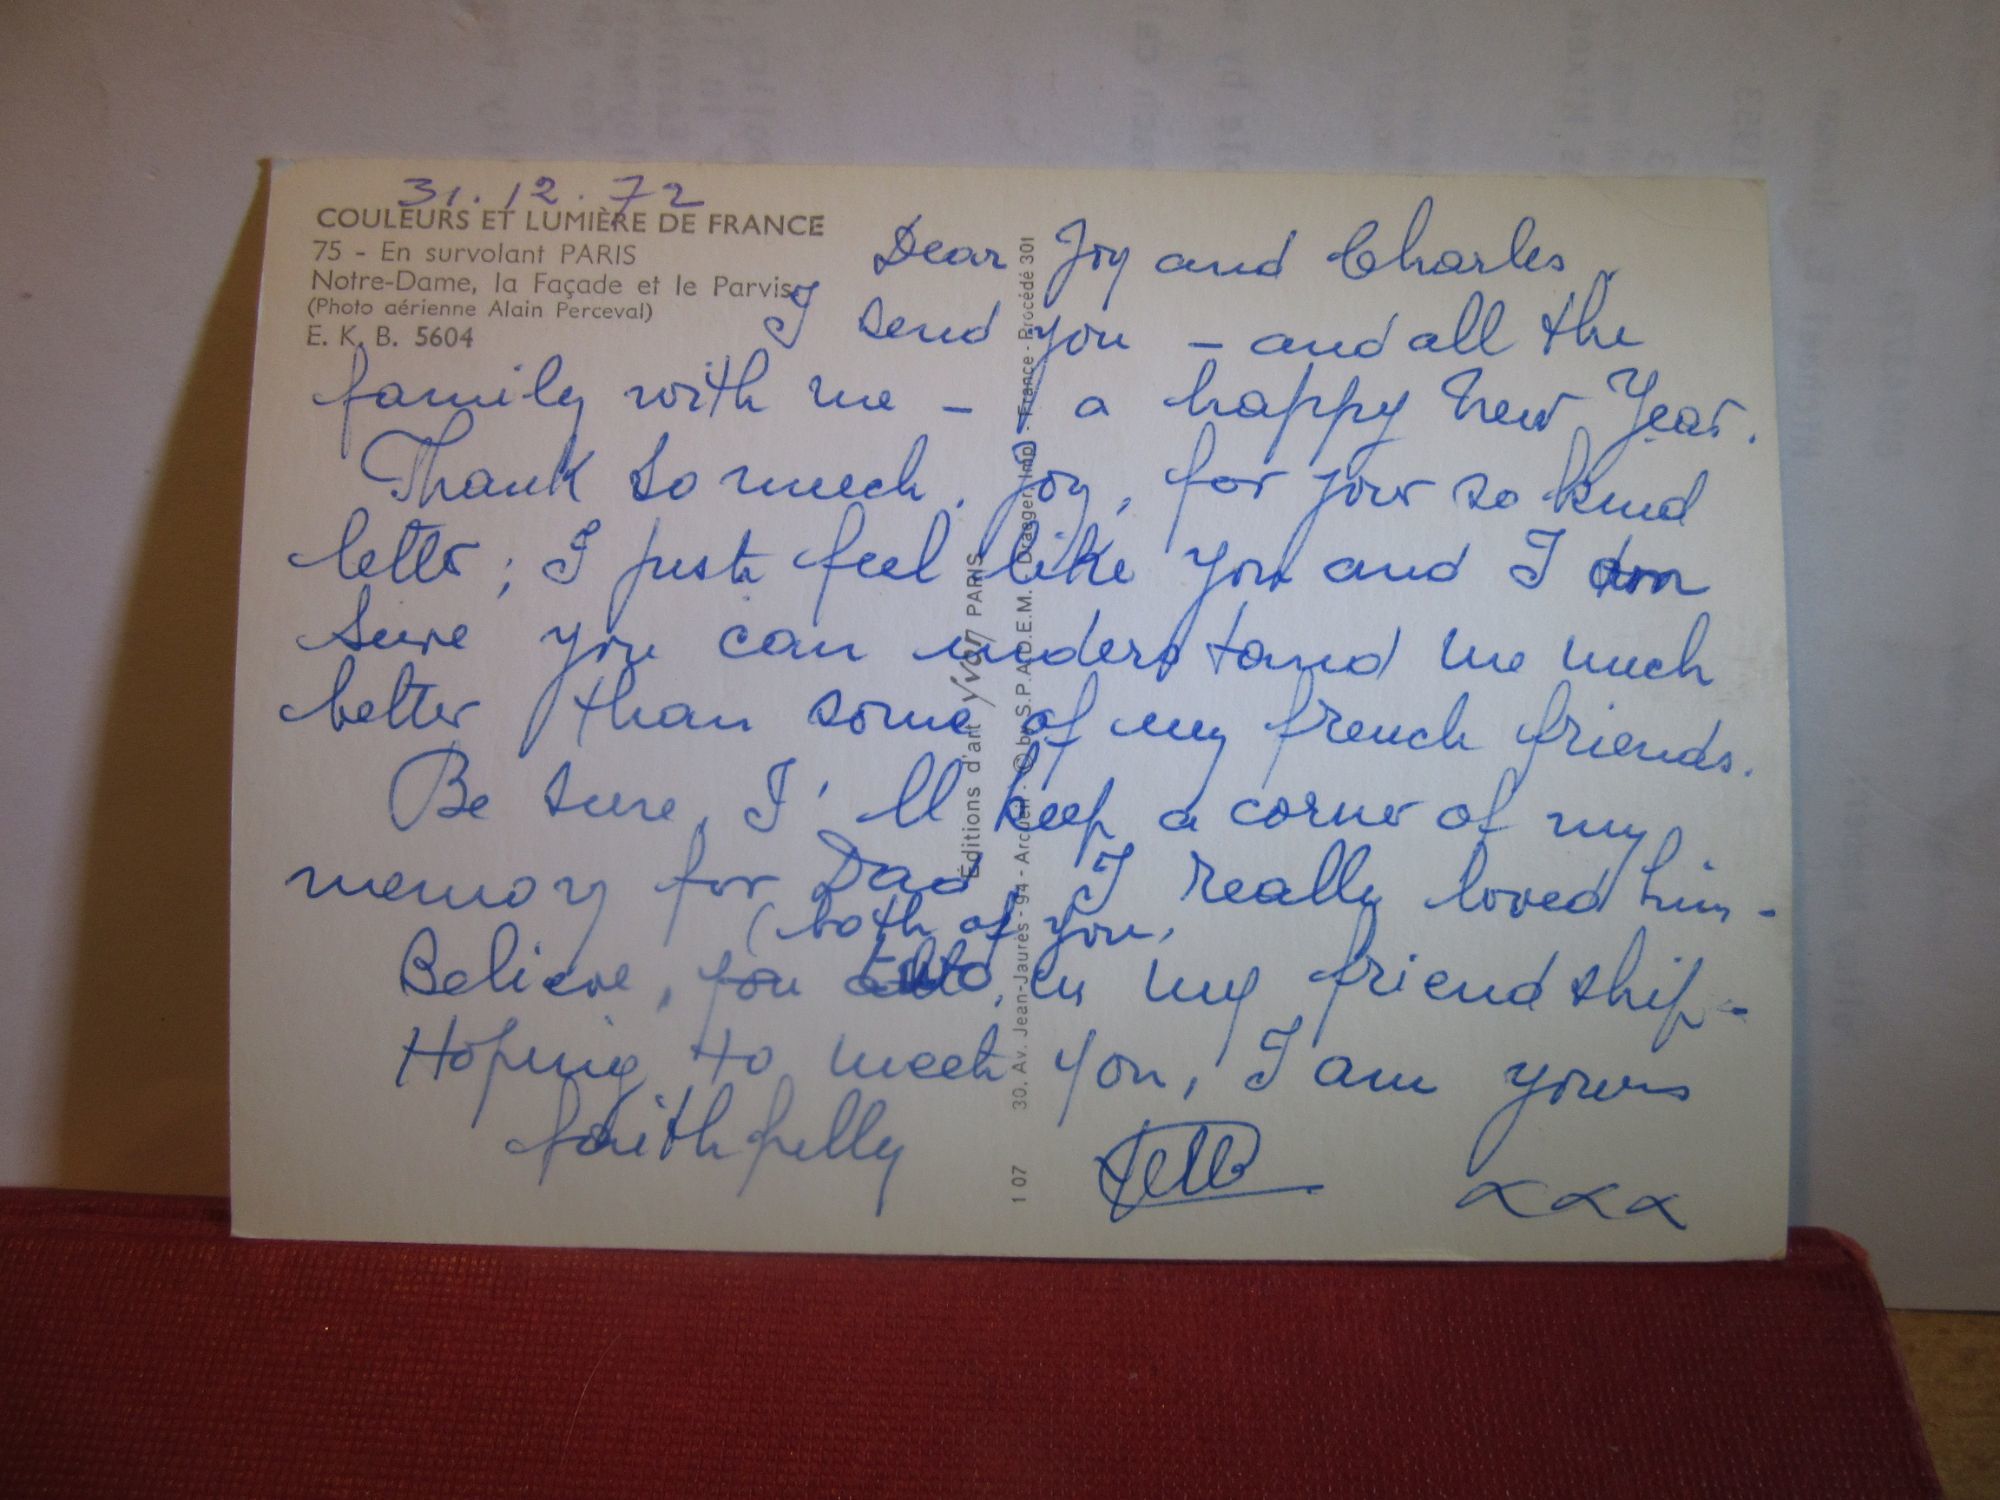 31.12.72
COULEURS ET LUMIÈRE DE FRANCE
75 - En survolant PARIS
Notre-Dame, la Façade et le Parvis
(Photo aérienne Alain Perceval)
E. K. B. 5604
Dear Joy and Charles,
I send you - and all the
family with me - a happy New Year.
Thank so much, Joy, for your so kind
letter; I just feel like you and I am
sure you can understand me much
better than some of my french friends.
Be sure, I'll keep a corner of my
memory for Dad, I really loved him -
(both of you,
Believe, you, in my friendship -
Hoping to meet you, I am yours
faithfully
xxx
Éditions d'art Yvon PARIS
30, Av. Jean-Jaurès - 94 - Arcueil - © by S.P.A.D.E.M. Draeger Imp. - France - Procédé 301
1 07